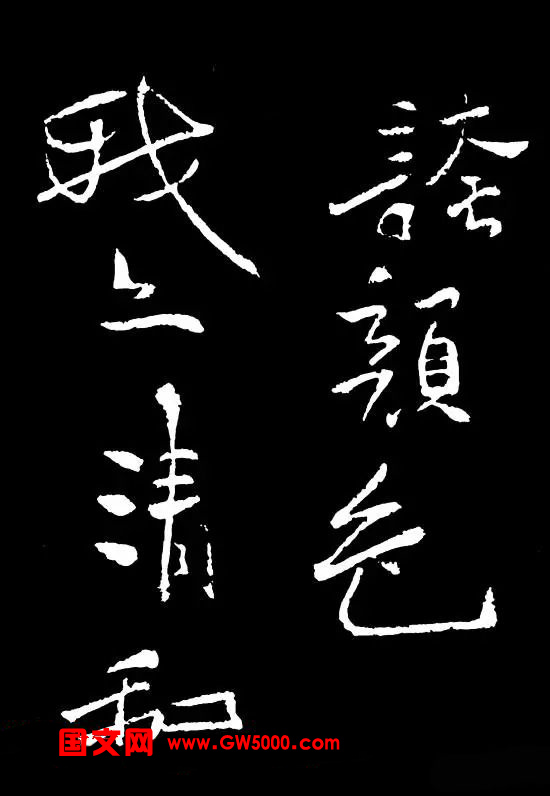 誇顔色
我上清和
国文网 www.GW5000.com